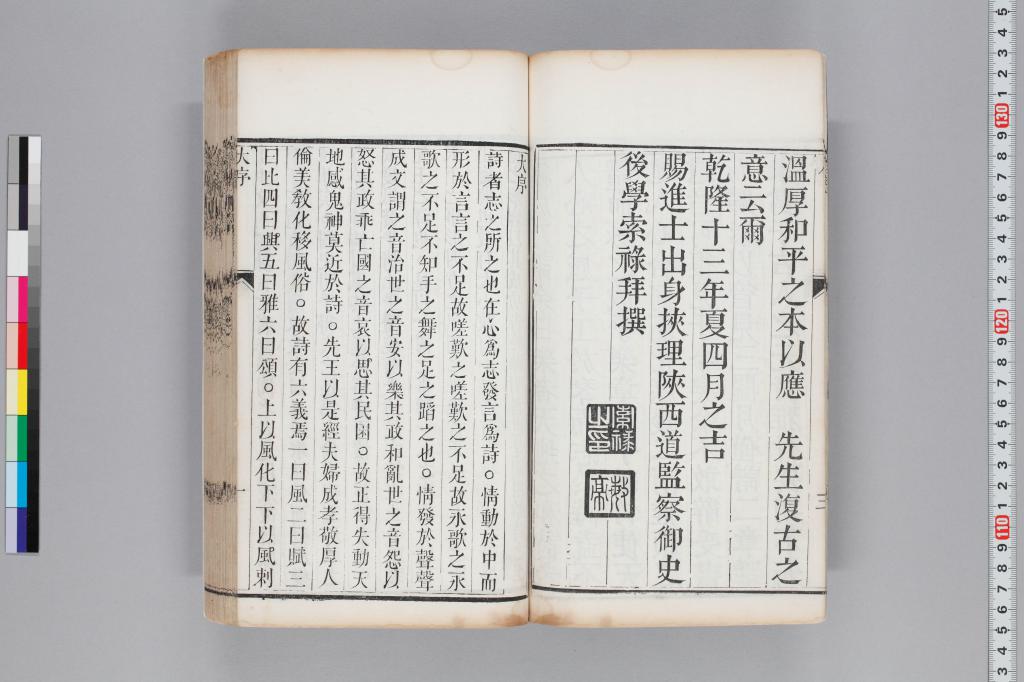 溫厚和平之本以應　先生復古之
意云爾
乾隆十三年夏四月之吉
賜進士出身掖理陝西道監察御史
後學索祿拜撰
索祿
之印
三
大序
詩者志之所之也在心為志發言為詩。情動於中而
形於言言之不足故嗟歎之嗟歎之不足故永歌之永
歌之不足不知手之舞之足之蹈之也。情發於聲聲
成文謂之音治世之音安以樂其政和亂世之音怨以
怒其政乖亡國之音哀以思其民困。故正得失動天
地感鬼神莫近於詩。先王以是經夫婦成孝敬厚人
倫美敎化移風俗。故詩有六義焉一曰風二曰賦三
曰比四曰興五曰雅六曰頌。上以風化下下以風刺
大序
一
5
4
3
2
1
130
9
8
7
6
5
4
3
2
1
120
9
8
7
6
5
4
3
2
1
110
9
8
7
6
5
4
3